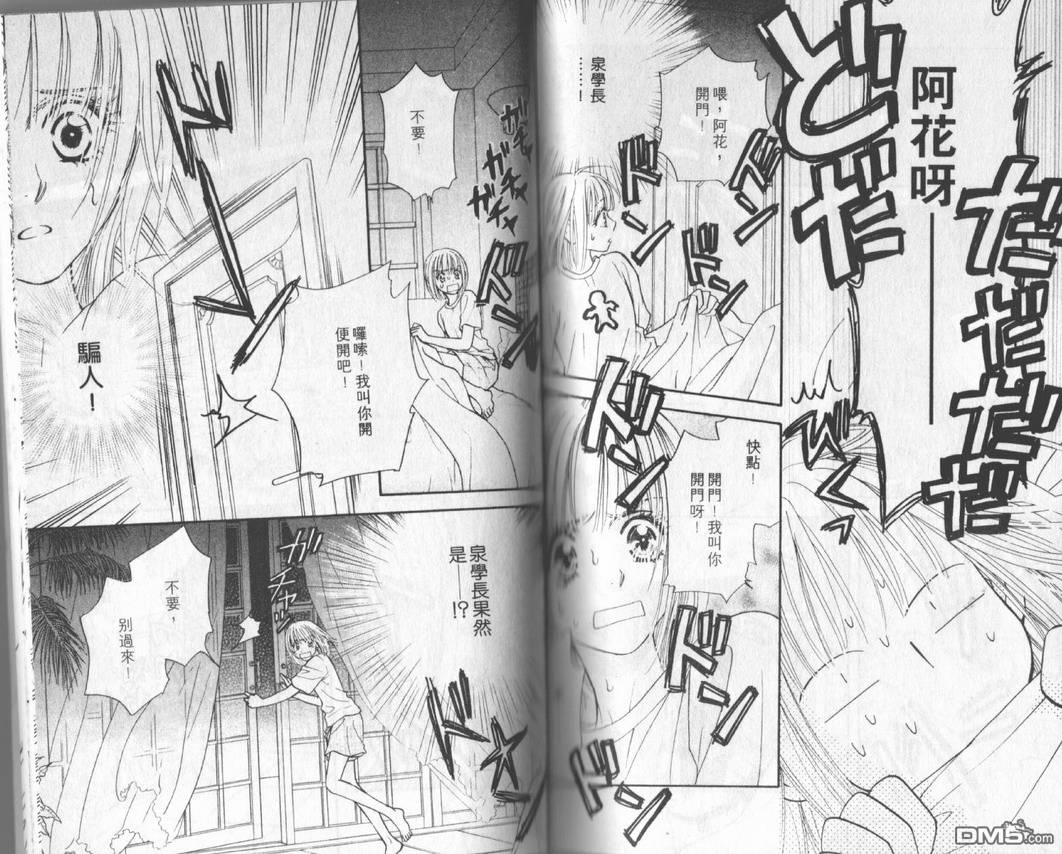 阿花呀——
どどだだ
だだだだ
喂,阿花,
開門!
泉學長
……!
ドンドン
ドンドン
快點!
開門!我叫你
開門呀!
ドン
ドン
ドン
ガチャ
ガチャ
ガチャ
不要!
ドン
囉嗦!我叫你開
便開吧!
騙人!
泉學長果然
是——!?
ガチャッ
不要,
別過來!
DM5.com